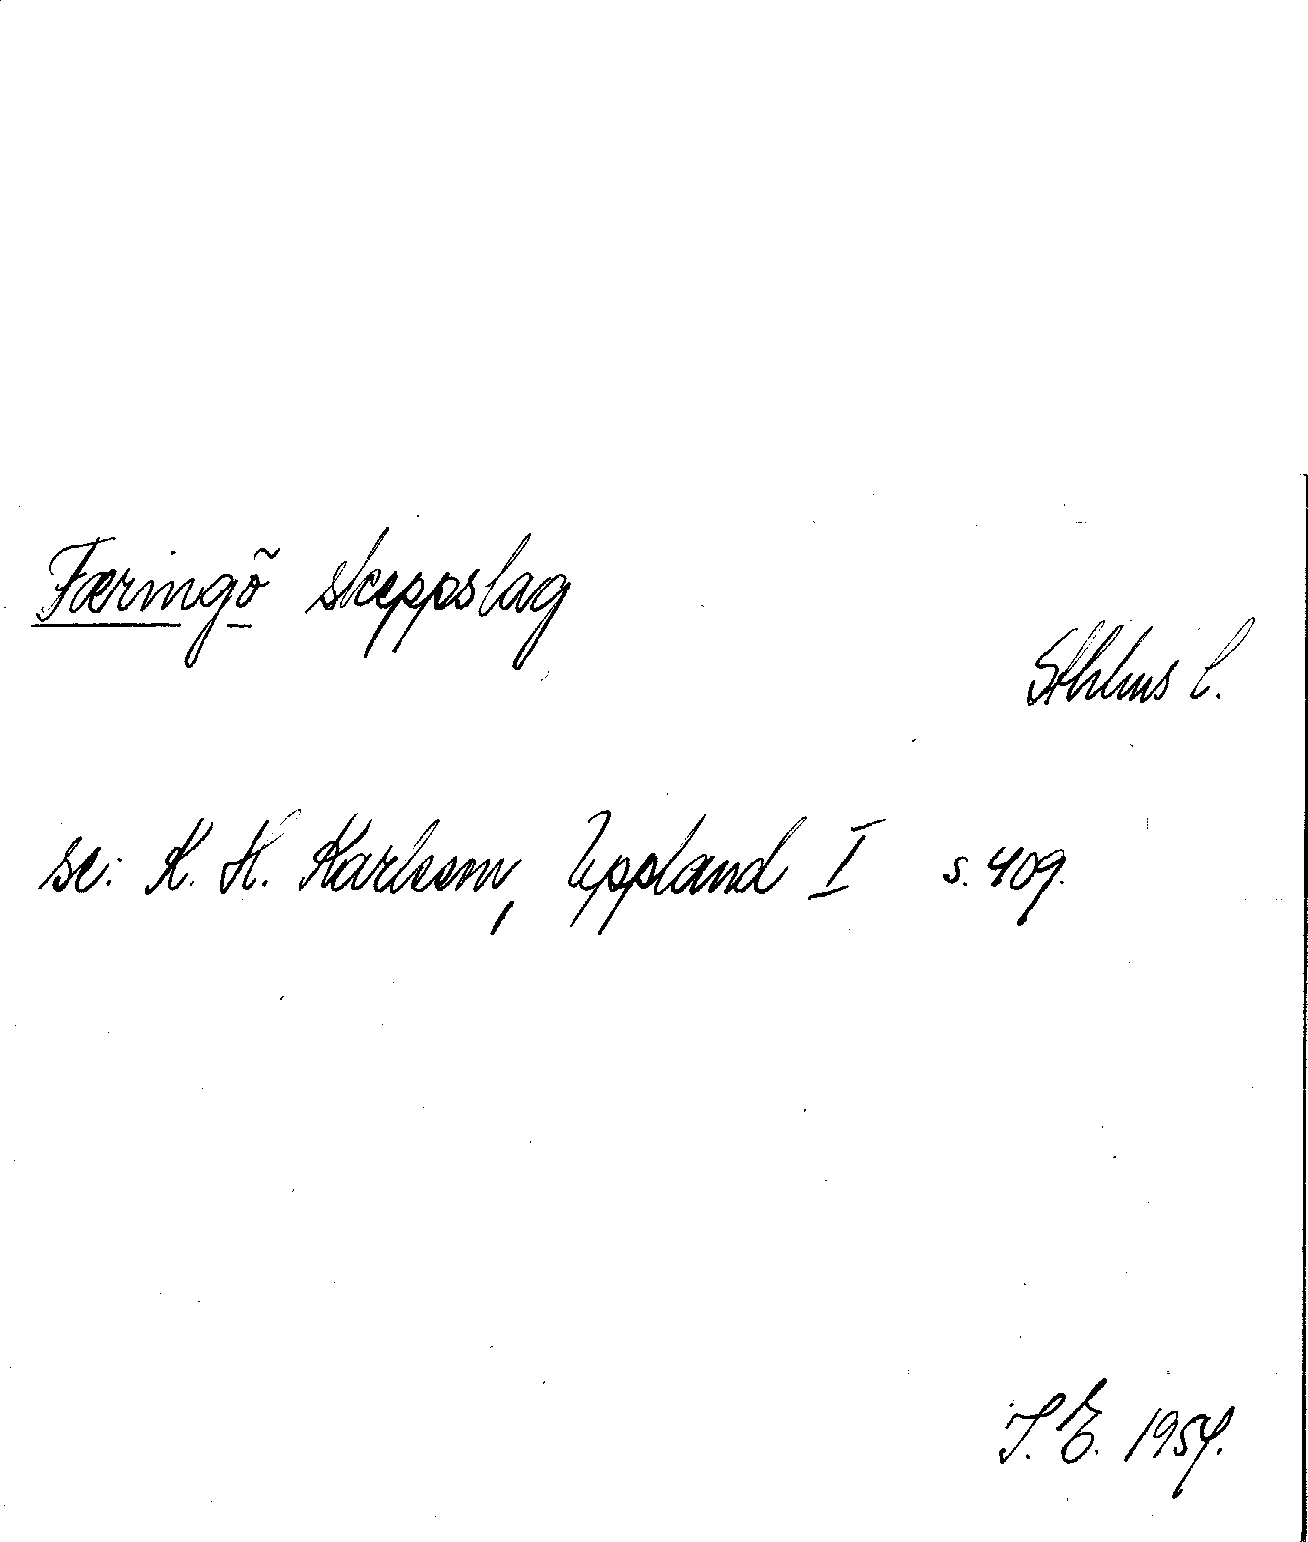 Færingö skeppslag
Sthlms l.
se: K. H. Karlsson, Uppland I s. 409.
I. E. 1954.